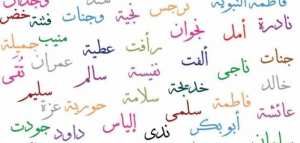 فاطمة النبوية نرجس وجدان
نادرة أمل نجوان نجية وجنات فتنة خضر
جنات ناجي ألفت رأفت عطية منيب جميلة
خالد خديجة نفيسة سالم عمران تقى
عائشة فاطمة سلمى سلامة حورية عزة سليم
أبو بكر ندى إلياس داود جودت